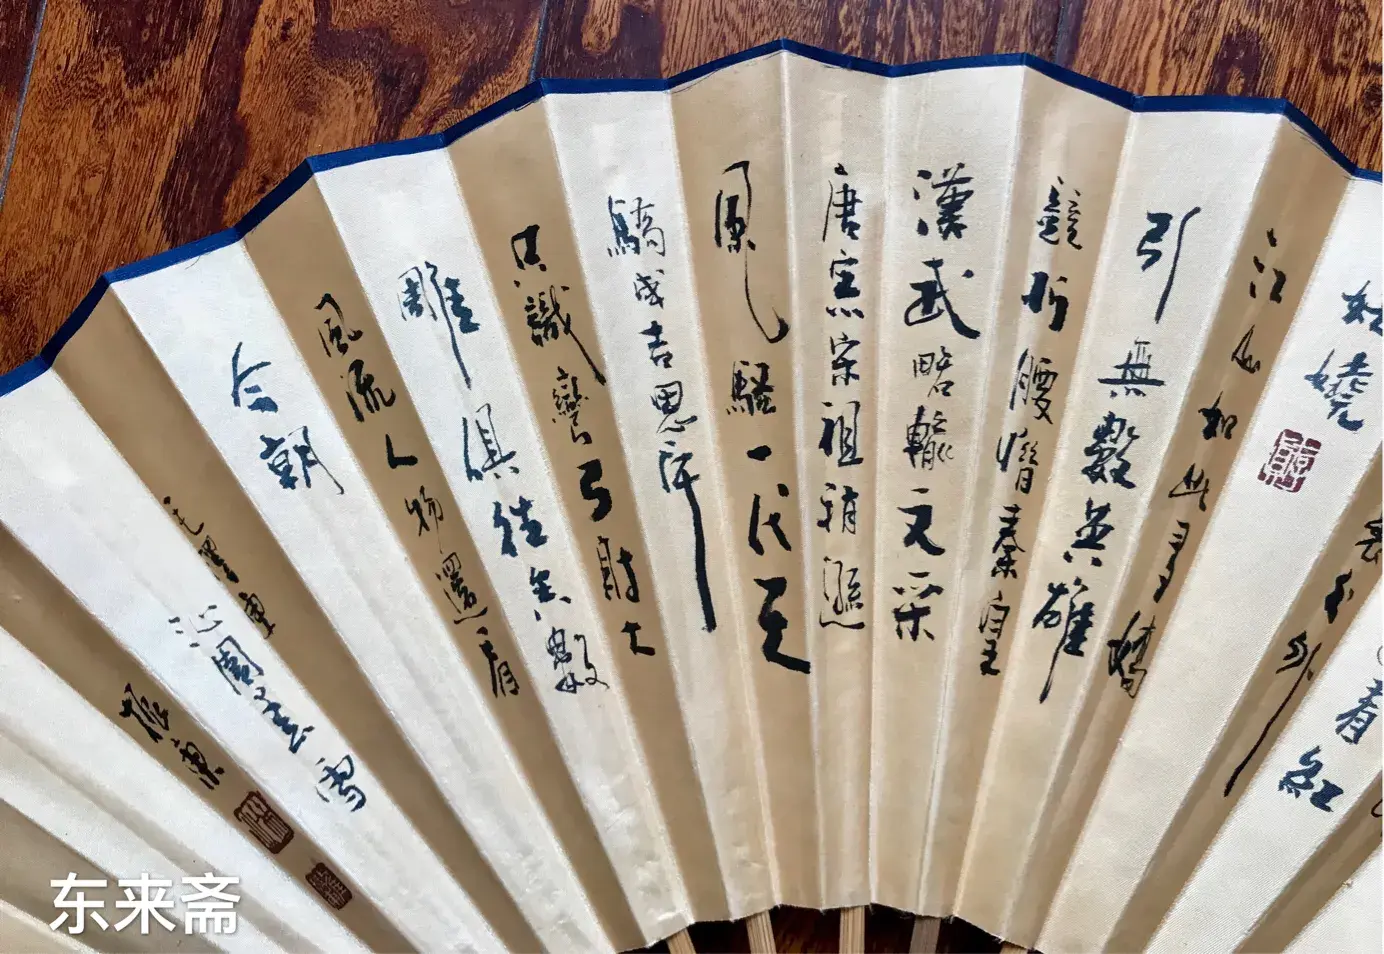 看紅
外
妖嬈
江山如此多嬌
引無數英雄
競折腰惜秦皇
漢武略輸文采
唐宗宋祖稍遜
風騷一代天
驕成吉思汗
只識彎弓射大
雕俱往矣數
風流人物還看
今朝
毛澤東
沁園春雪
振東
东来斋